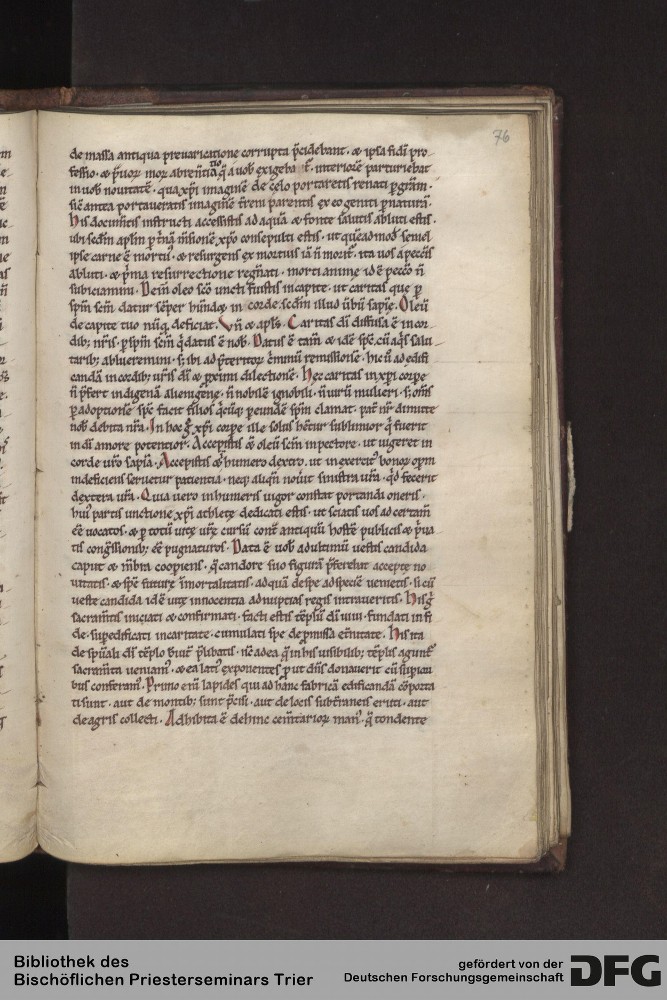 76
de massa antiqua prevaricatione corrupta p̄cidebant. & ipsa fidi pro
fessio. & p̄uor mor abrenūciatio q̄ a vob exigeba t̄. interiorē parturiebat
in vob novitatē. qua xp̄i imaginē de celo portaretis renati p gr̄am.
sic̄ antea portaveratis imaginē t̄reni parentis ex eo geniti p naturā.
His docum̄tis instructi accessistis ad aquā & fonte salutis abluti estis.
ubi scdm̄ aplm̄ p t̄nā m̄sionē xp̄o consepulti estis. ut quēadmod̄ semel
ipse carne ē mortuˀ & resurgens ex mortuis iā n̄ morit̄. ita vos a peccīs
abluti. & p̄ma resurrectione regn̄ati. morti anime id ē pecc̄o n̄
subiciamini. Dein̄ oleo sc̄o uncti fuistis in capite. ut caritas que p
sp̄m sc̄m datur sēper hr̄nda in corde. scdm̄ illud ūbū sapīe. Oleū
de capite tuo nūq̄ deficiat. Vn̄ & apl̄s. Caritas dī diffusa ē in cor
dibꝫ nr̄is. p sp̄m sc̄m q̄ datus ē nob̄. Datus ē tam̄ & idē sp̄c cū aq̄s salu
taribꝫ ablueremini. sꝫ ibi ad p̄teritor c̄minū remissionē. hic ū ad edifi
candā in cordibꝫ vr̄is dī & p̄ximi dilectionē. Hec caritas in xp̄i corpe
n̄ p̄fert indigenā alienigene. n̄ nobilē ignobili. n̄ virū mulieri. sꝫ om̄s
p adoptionē sp̄c facit filios q̄cūq; p eundē sp̄m clamat. pat̄ nr̄ dimitte
nob̄ debita nr̄a. In hoc g̊ xp̄i corpe ille solus hētur sublimior q̄ fuerit
in dī amore potentior. Accepistis & oleū sc̄m in pectore. ut vigeret in
corde vr̄o sapīa. Accepistis & humero dextro. ut in exercitˀ bonor opm̄
indeficiens servetur patientia. necq; aliqn̄ nov̄it sinistra vr̄a. q̄d fecerit
dextera vr̄a. Quia vero in humeris vigor constat portandi oneris.
huiˀ partis unctione xp̄i athlete dedicati estis. ut sciatis vos ad certam̄
eē vocatos. & p totū vite vr̄e cursū cont̄ antiquū hostē publicis & p̄va
tis cong̊ssionibꝫ eē pugnaturos. Data ē vob̄ ad ultimū vestis candida
caput & m̄bra coopiens. q̄ candore suo figurā p̄ferebat accepte no
vitatis. & spē future īmortalitatis. ad quā de spe ad speciē venietis. si cū
veste candida id ē vite innocentia ad nuptias regis intraveritis. His g̊
sacram̄tis iniciati & confirmati. facti estis tēplū dī vivi. fundati in fi
de. sup edificati in caritate. cumulati spe de p̄missa et̄nitate. His ita
de sp̄uali dī tēplo b̄vit̄ p̄libatis. nc̄ ad ea q̄ in his visibilibꝫ tēplis agunt̄
sacram̄ta veniamˀ. & ea latiˀ exponentes p ut d̄ns donaverit cū supiori
bus conferamˀ. Primo eni lapides qui ad hanc fabricā edificandā cōporta
ti sunt. aut de montibꝫ sunt p̄cisi. aut de locis subt̄raneis eruti. aut
de agris collecti. Adhibita ē dehinc cem̄tarior manˀ. q̄ tondente
Bibliothek des
Bischöflichen Priesterseminars Trier
gefördert von der
Deutschen Forschungsgemeinschaft
DFG